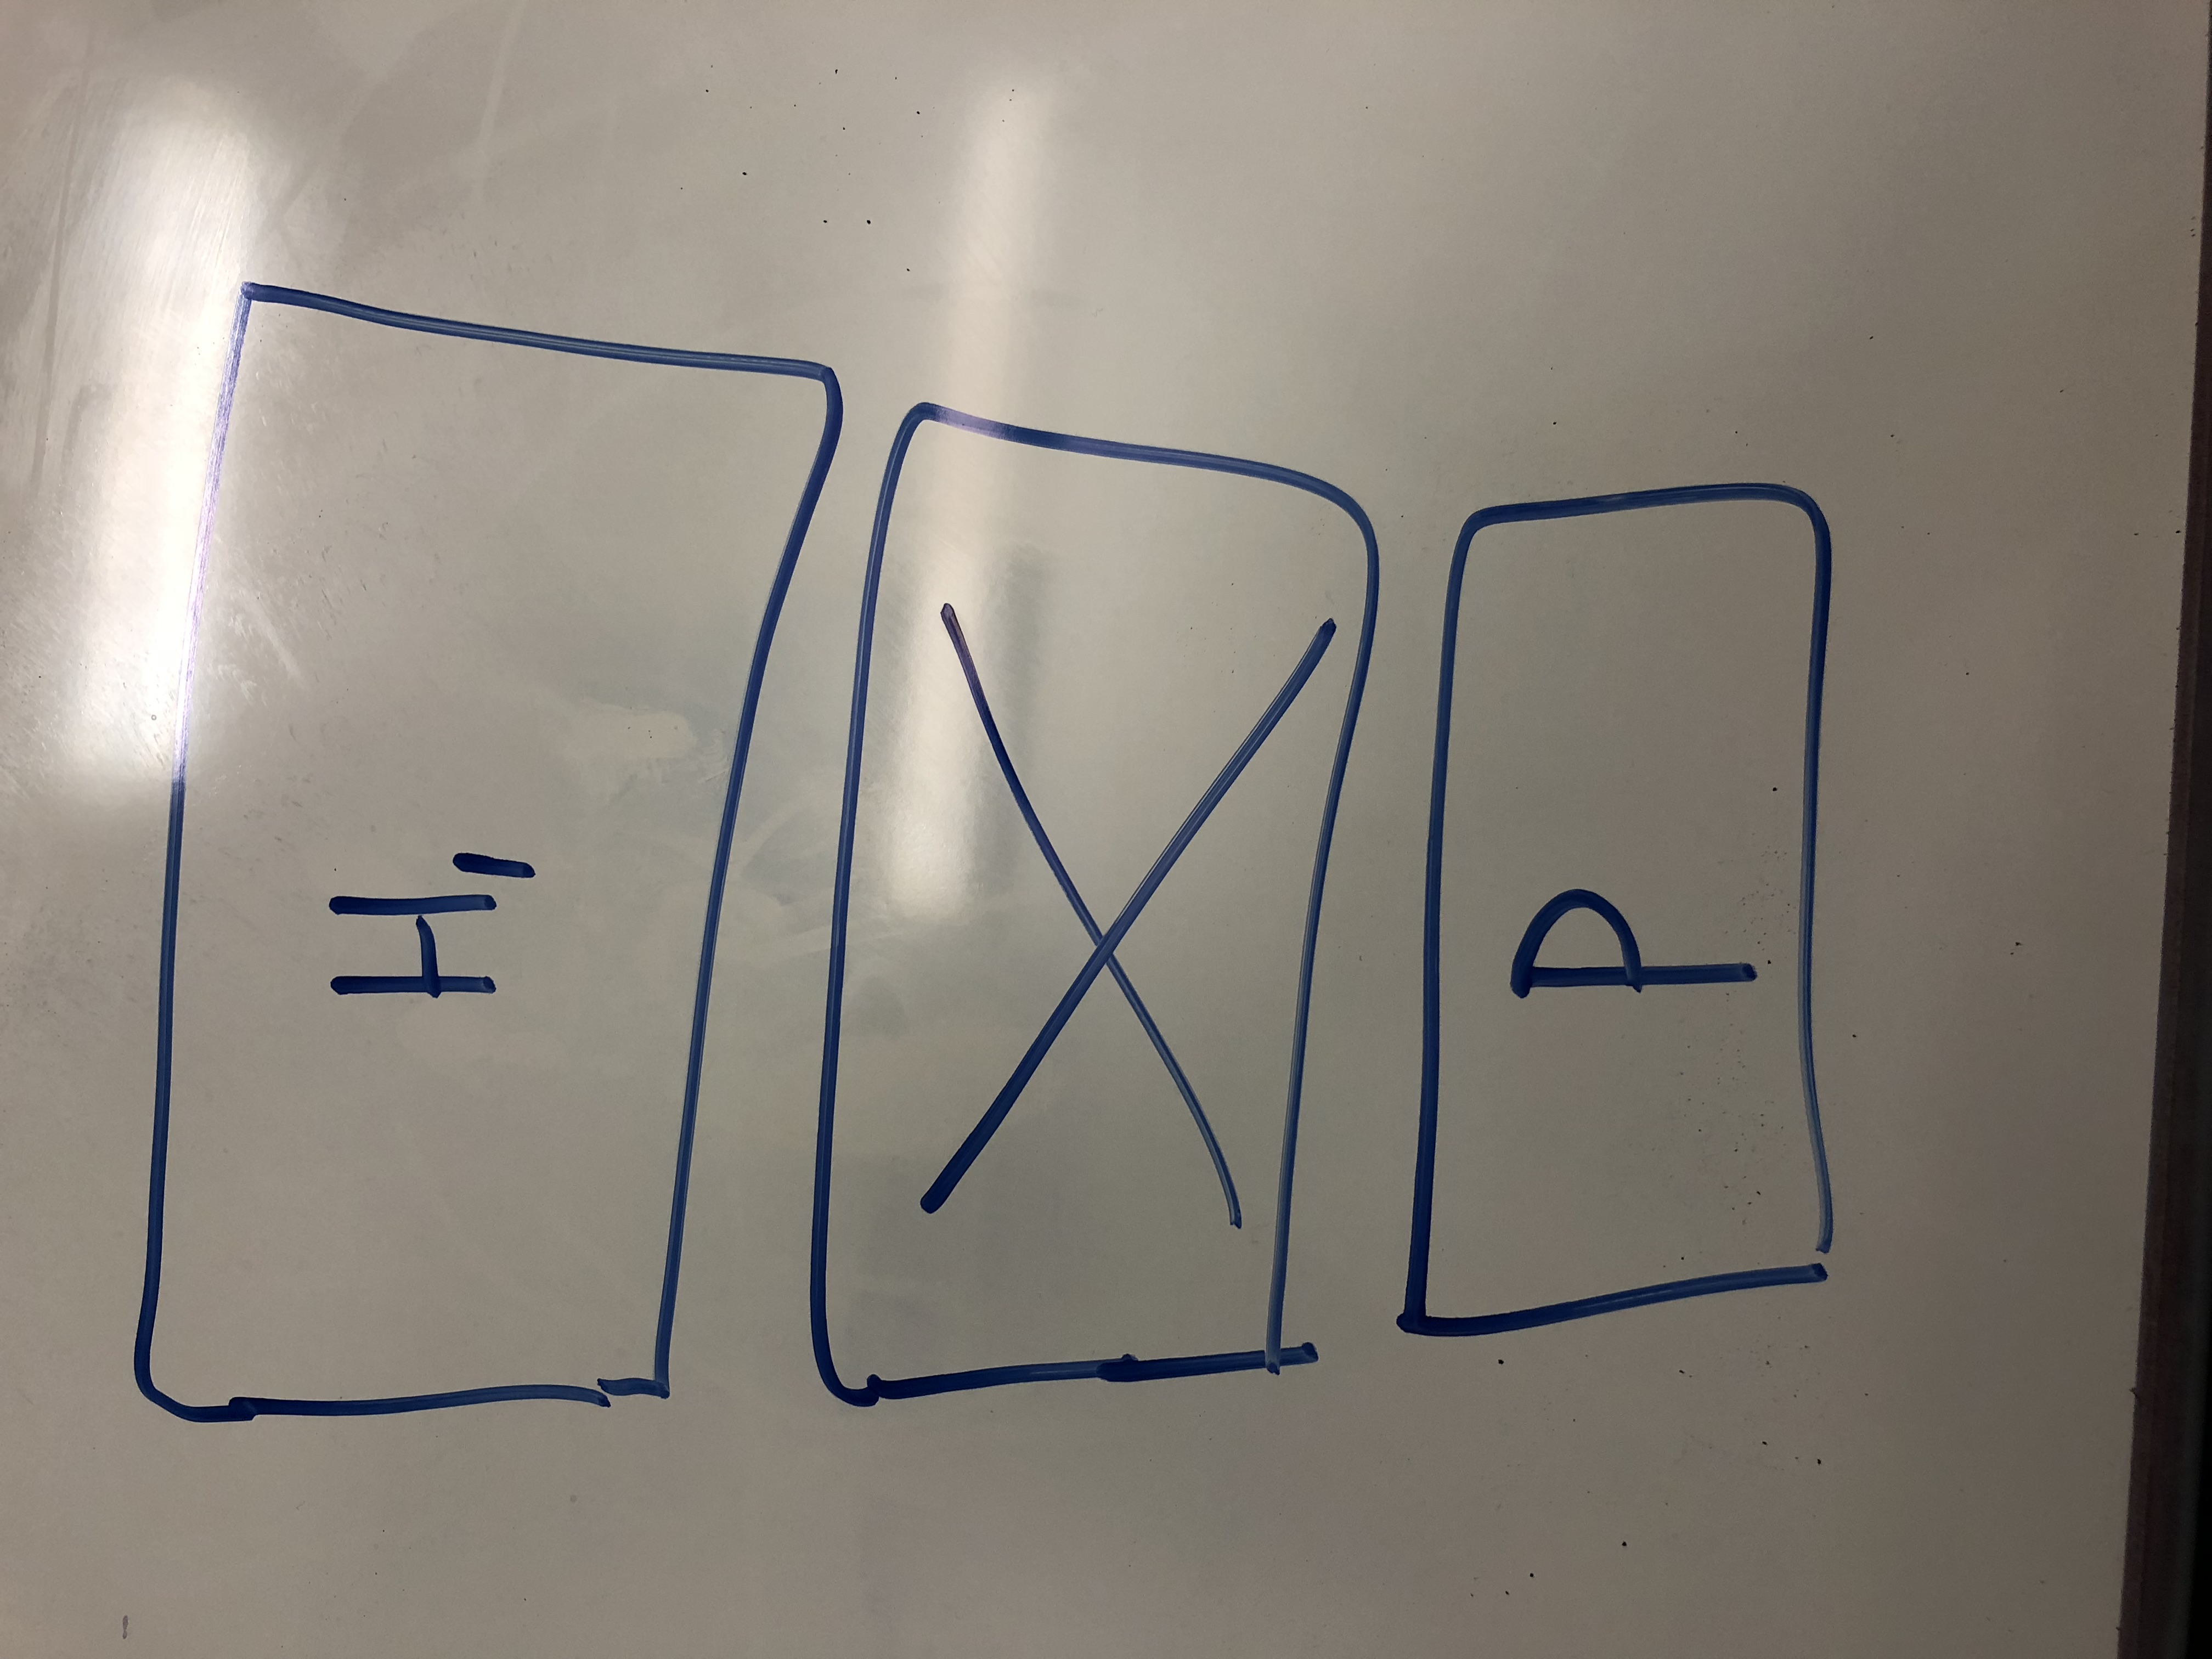 H1
P